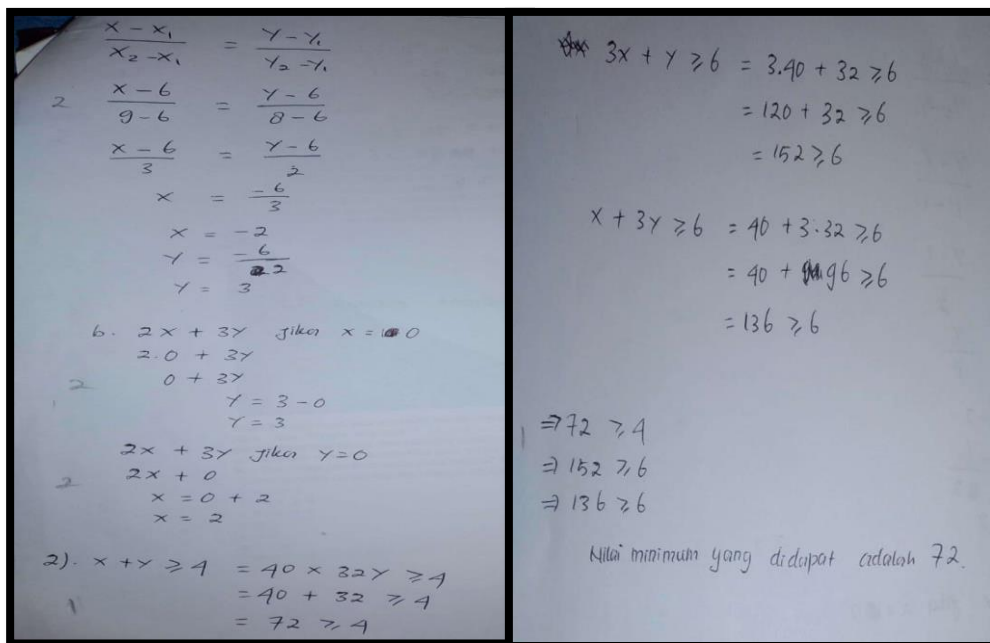 x - x₁ / x₂ - x₁ = y - y₁ / y₂ - y₁
2 x - 6 / 9 - 6 = y - 6 / 8 - 6
x - 6 / 3 = y - 6 / 2
x = -6 / 3
x = -2
y = -6 / 2
y = 3
b. 2x + 3y jika x = 0
2.0 + 3y
2 0 + 3y
y = 3 - 0
y = 3
2x + 3y jika y = 0
2 2x + 0
x = 0 + 2
x = 2
2). x + y ≥ 4 = 40 x 32y ≥ 4
1 = 40 + 32 ≥ 4
= 72 ≥ 4
3x + y ≥ 6 = 3.40 + 32 ≥ 6
= 120 + 32 ≥ 6
= 152 ≥ 6
x + 3y ≥ 6 = 40 + 3.32 ≥ 6
= 40 + 96 ≥ 6
= 136 ≥ 6
1 ⇒ 72 ≥ 4
⇒ 152 ≥ 6
⇒ 136 ≥ 6
Nilai minimum yang didapat adalah 72.